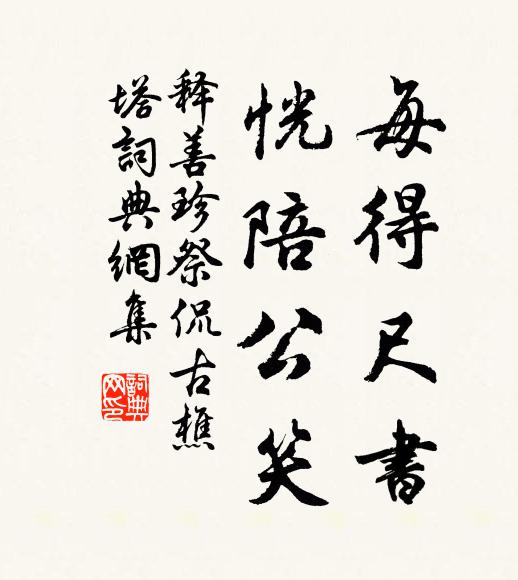 每得尺書
恍陪公笑
释善珍祭侃古樵
塔詞典網集
詞典网印